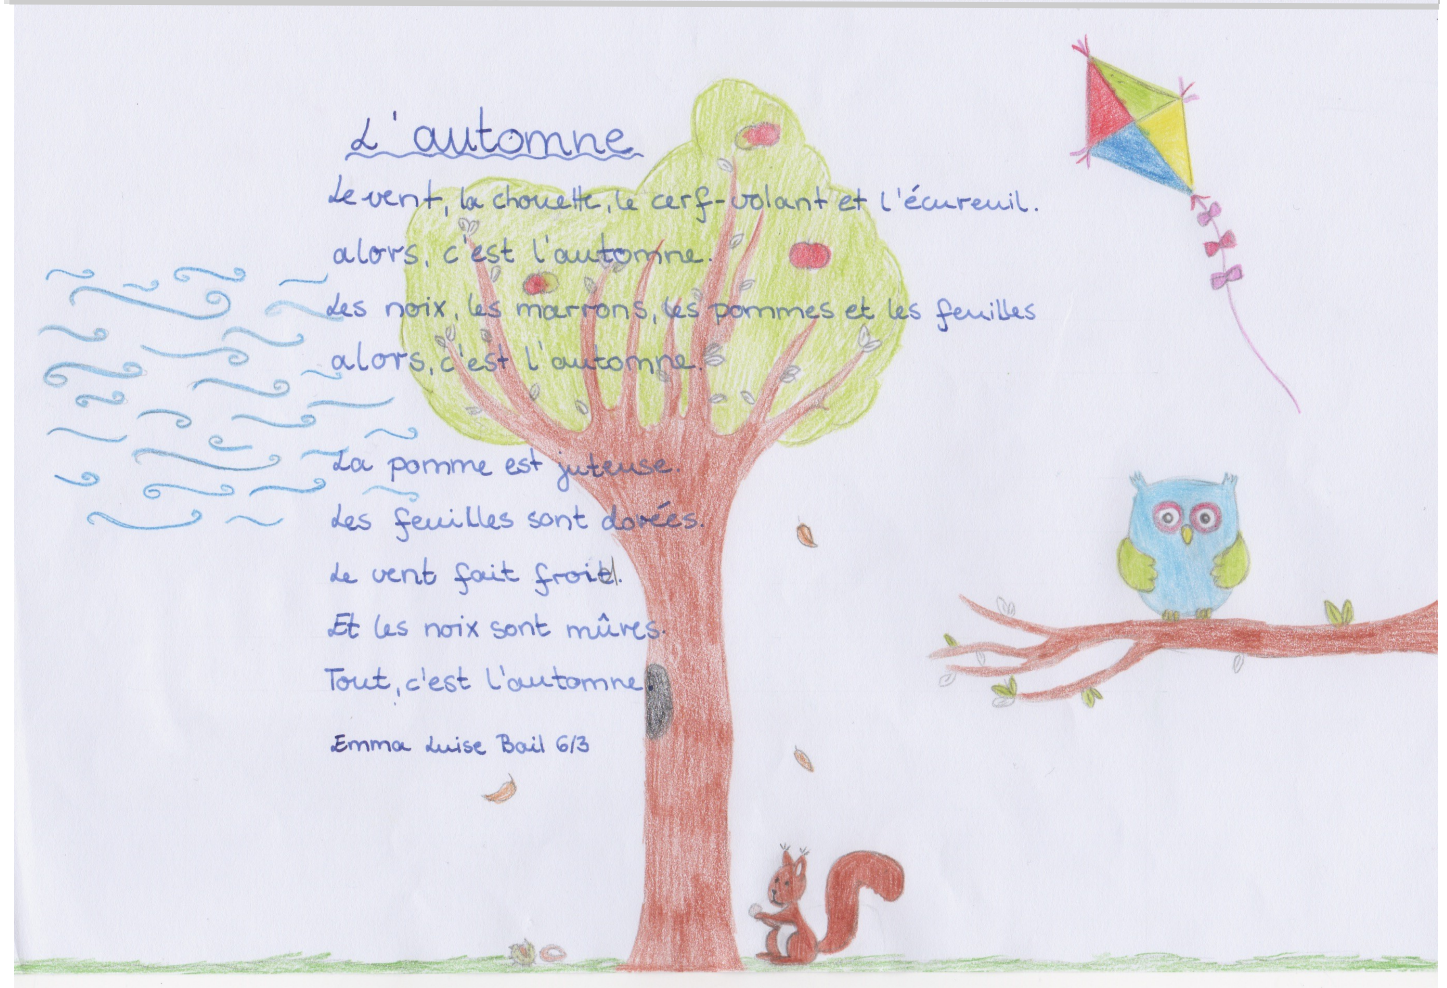 L'automne
Le vent, la chouette, le cerf-volant et l'écureuil.
alors, c'est l'automne.
Les noix, les marrons, les pommes et les feuilles
alors, c'est l'automne.
La pomme est juteuse.
Les feuilles sont dorées.
Le vent fait froid.
Et les noix sont mûres.
Tout, c'est l'automne.
Emma Luise Bail 6/3